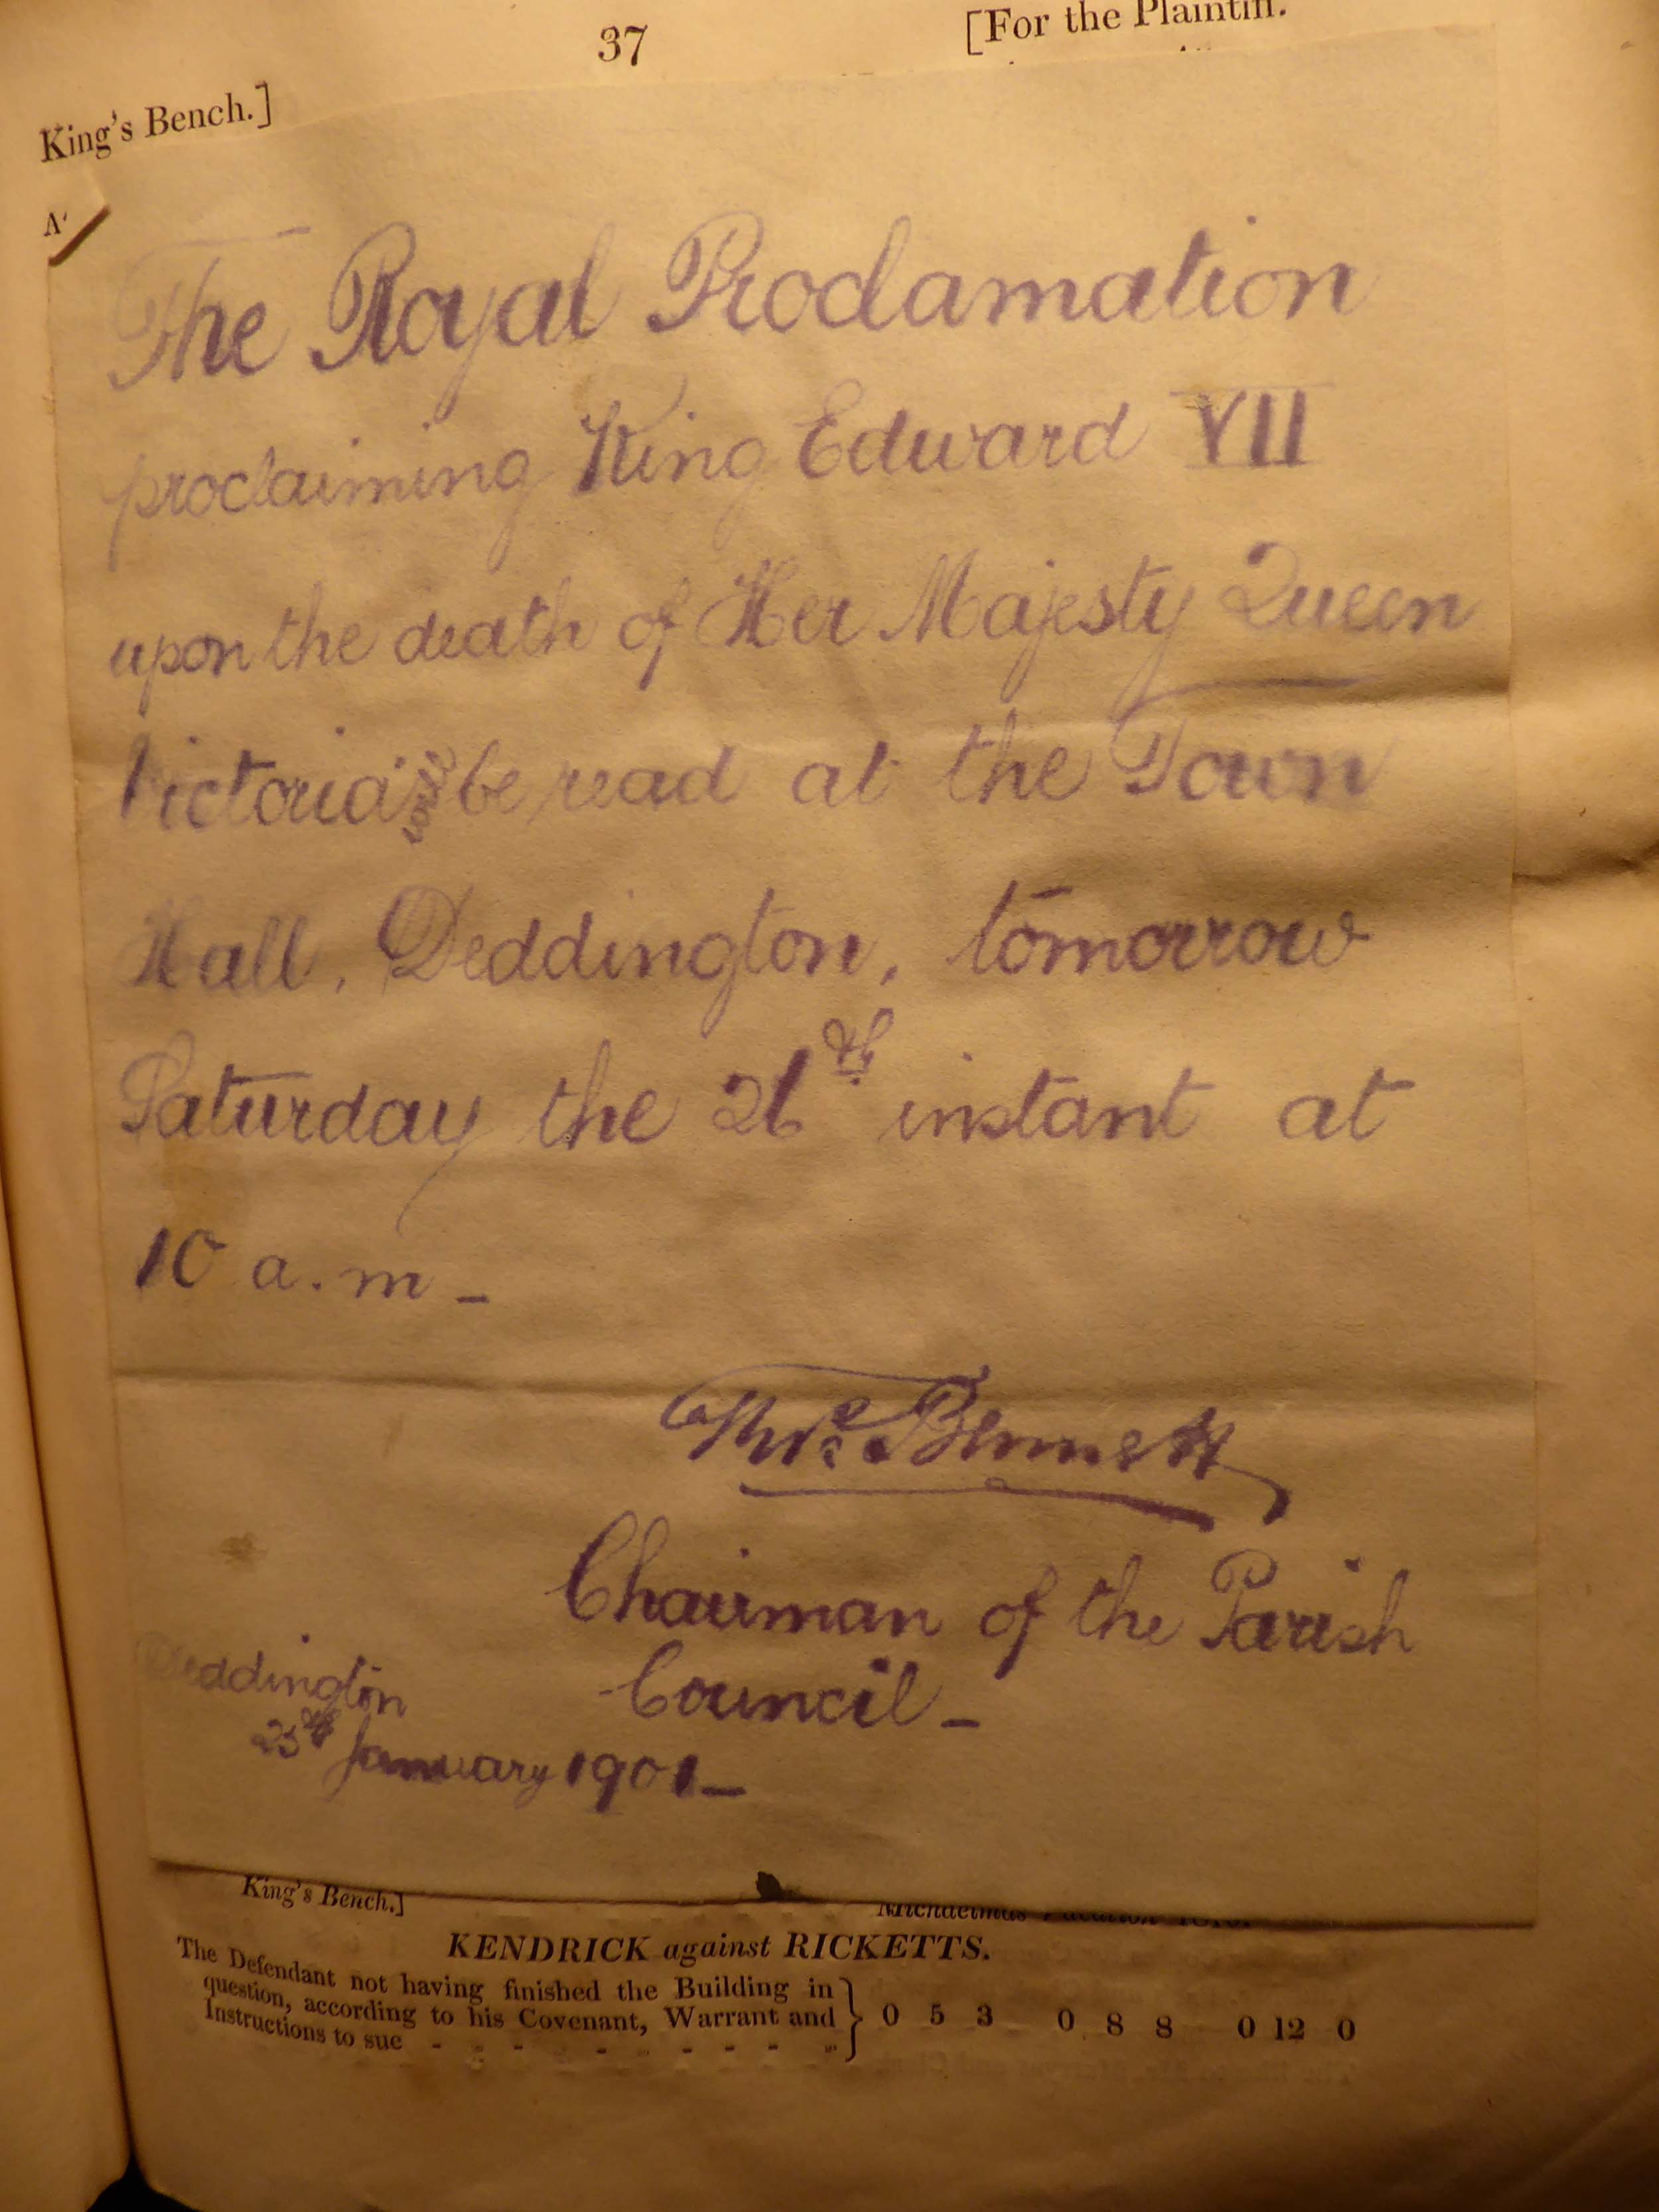 37
[For the Plaintiff.
King's Bench.]
The Royal Proclamation
proclaiming King Edward VII
upon the death of Her Majesty Queen
Victoria will be read at the Town
Hall, Deddington, tomorrow
Saturday the 26th instant at
10 a.m _
Thos. Bennett
Chairman of the Parish
Council _
Deddington
25th January 1901 _
King's Bench.]
Michaelmas Vacation
KENDRICK against RICKETTS.
The Defendant not having finished the Building in
question, according to his Covenant, Warrant and } 0 5 3 0 8 8 0 12 0
Instructions to sue - - - - - - - - "